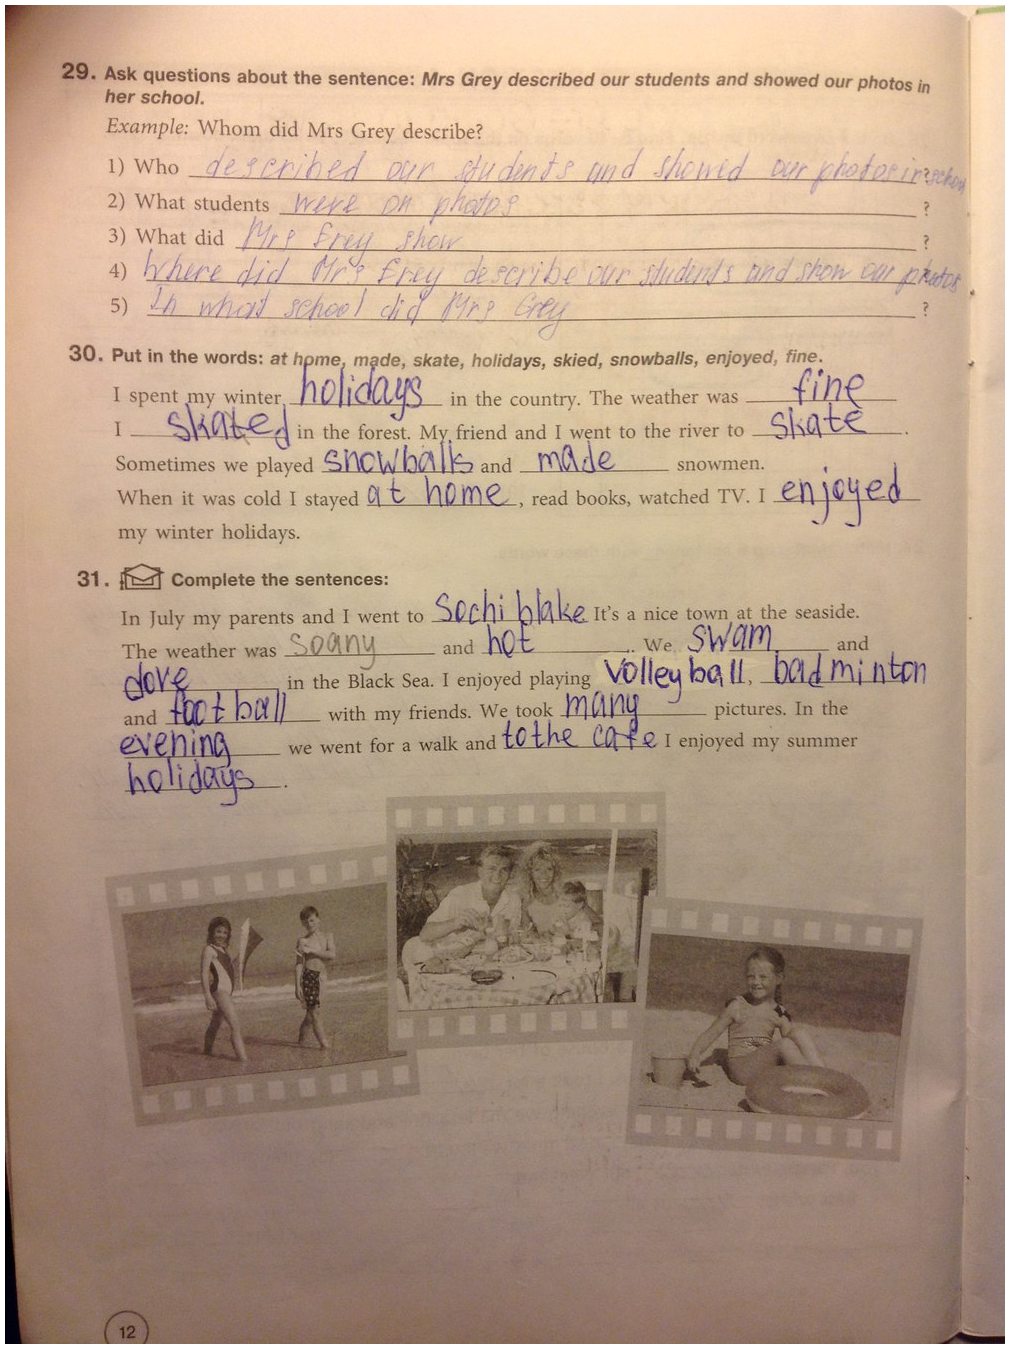 29. Ask questions about the sentence: Mrs Grey described our students and showed our photos in
her school.
Example: Whom did Mrs Grey describe?
1) Who described our students and showed our photos in school?
2) What students were on photos ?
3) What did Mrs Grey show ?
4) Where did Mrs Grey describe our students and show our photos
5) In what school did Mrs Grey ?
30. Put in the words: at home, made, skate, holidays, skied, snowballs, enjoyed, fine.
I spent my winter holidays in the country. The weather was fine
I skated in the forest. My friend and I went to the river to skate .
Sometimes we played snowballs and made snowmen.
When it was cold I stayed at home , read books, watched TV. I enjoyed
my winter holidays.
31. Complete the sentences:
In July my parents and I went to Sochi blake It's a nice town at the seaside.
The weather was soany and hot . We swam and
dove in the Black Sea. I enjoyed playing volleyball, badminton
and football with my friends. We took many pictures. In the
evening we went for a walk and to the cafe I enjoyed my summer
holidays .
12